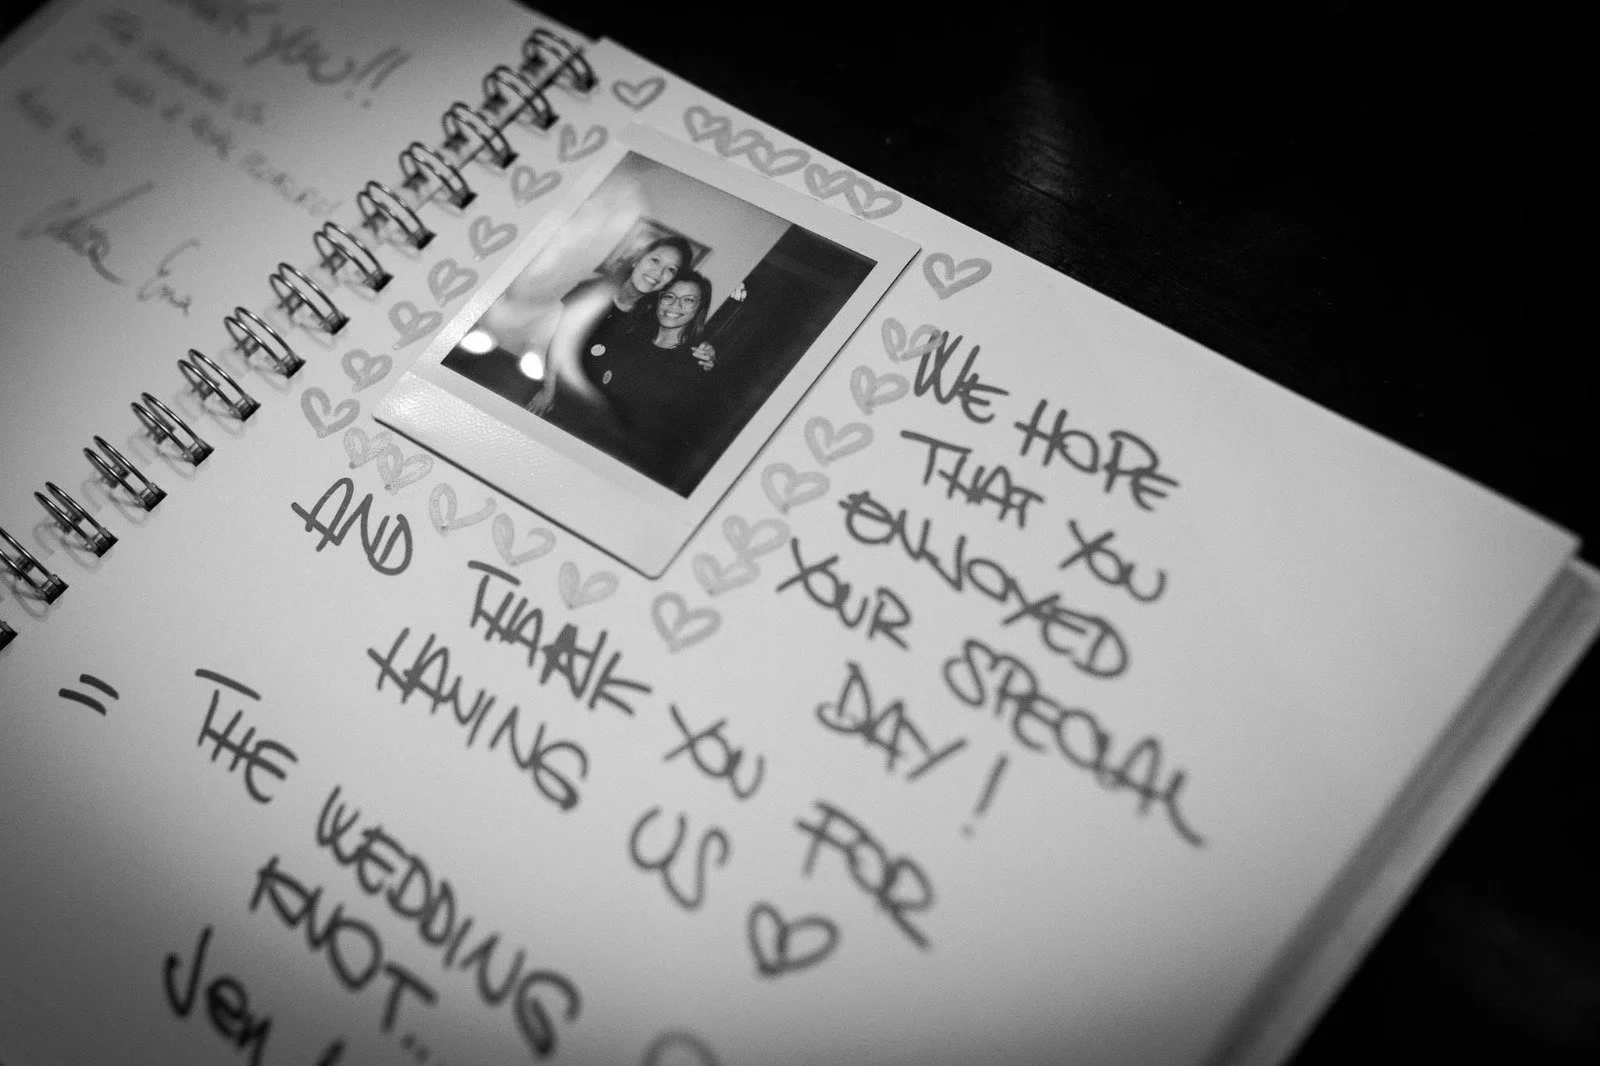 you!!
WE HOPE
THAT YOU
ENJOYED
YOUR SPECIAL
DAY!
AND THANK YOU FOR
HAVING US
= THE WEDDING
KNOT...
Jen